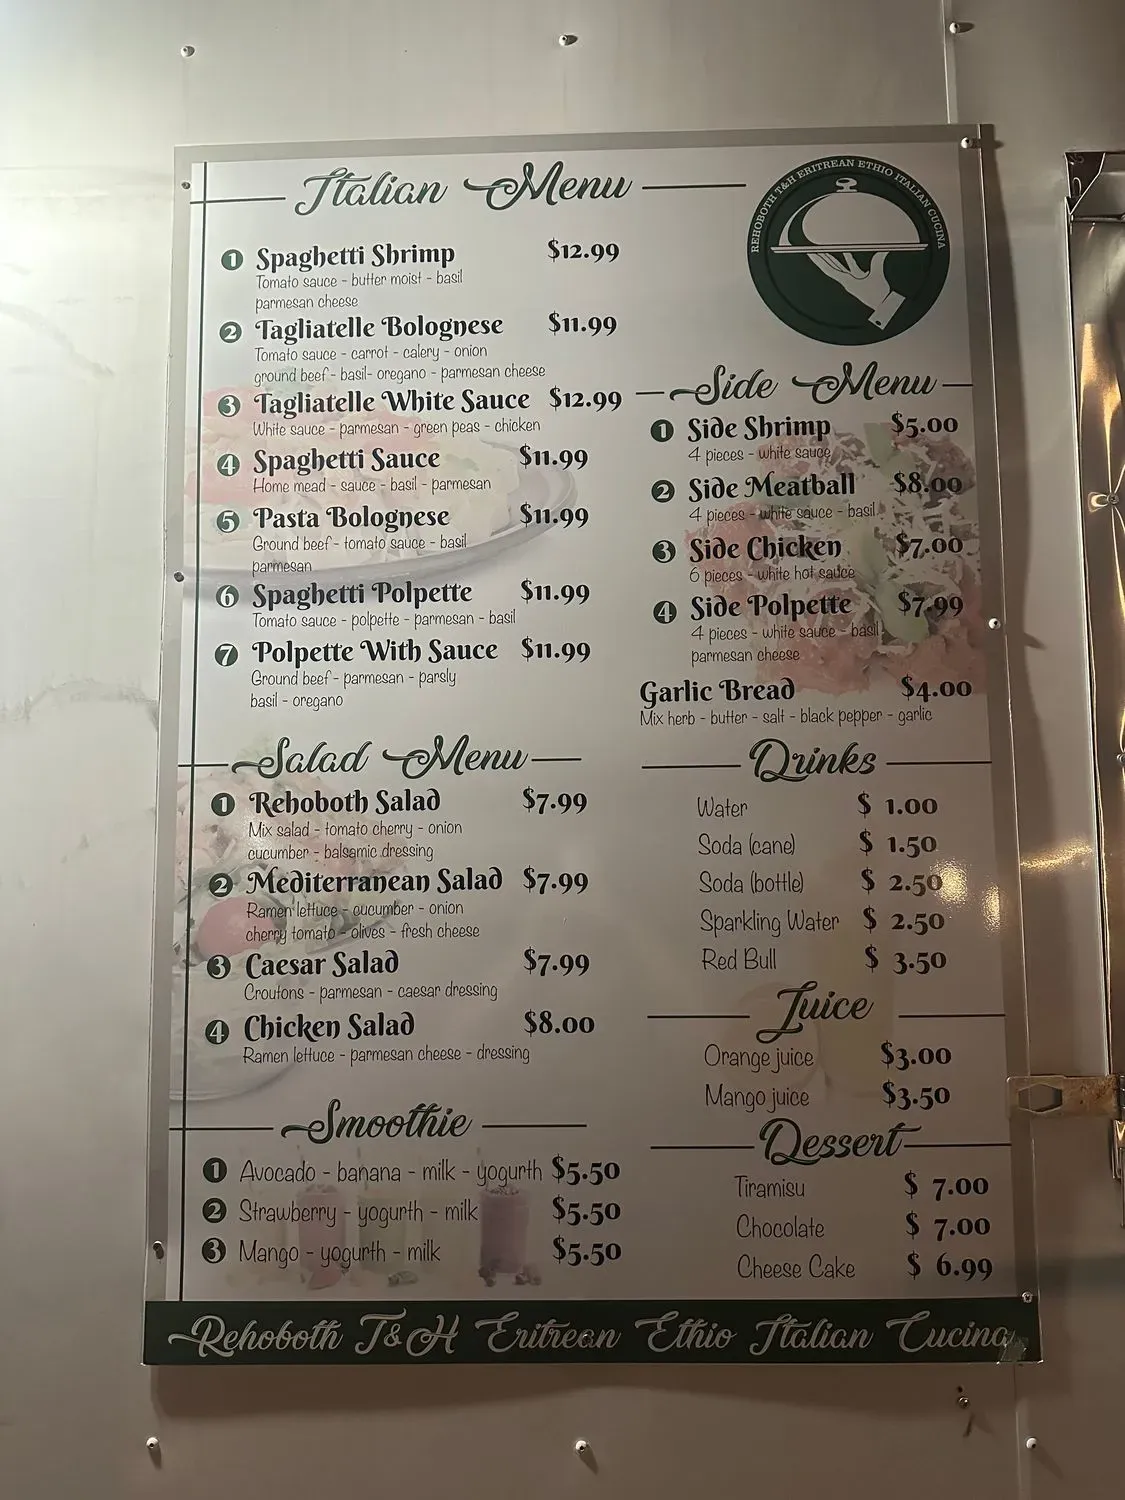 Italian Menu
REHOBOTH T&H ERITREAN ETHIO ITALIAN CUCINA
1 Spaghetti Shrimp $12.99
Tomato sauce - butter moist - basil
parmesan cheese
2 Tagliatelle Bolognese $11.99
Tomato sauce - carrot - calery - onion
ground beef - basil- oregano - parmesan cheese
3 Tagliatelle White Sauce $12.99
White sauce - parmesan - green peas - chicken
4 Spaghetti Sauce $11.99
Home mead - sauce - basil - parmesan
5 Pasta Bolognese $11.99
Ground beef - tomato sauce - basil
parmesan
6 Spaghetti Polpette $11.99
Tomato sauce - polpette - parmesan - basil
7 Polpette With Sauce $11.99
Ground beef - parmesan - parsly
basil - oregano
Side Menu
1 Side Shrimp $5.00
4 pieces - white sauce
2 Side Meatball $8.00
4 pieces - white sauce - basil
3 Side Chicken $7.00
6 pieces - white hot sauce
4 Side Polpette $7.99
4 pieces - white sauce - basil
parmesan cheese
Garlic Bread $4.00
Mix herb - butter - salt - black pepper - garlic
Salad Menu
1 Rehoboth Salad $7.99
Mix salad - tomato cherry - onion
cucumber - balsamic dressing
2 Mediterranean Salad $7.99
Ramen lettuce - cucumber - onion
cherry tomato - olives - fresh cheese
3 Caesar Salad $7.99
Croutons - parmesan - caesar dressing
4 Chicken Salad $8.00
Ramen lettuce - parmesan cheese - dressing
Drinks
Water $ 1.00
Soda (cane) $ 1.50
Soda (bottle) $ 2.50
Sparkling Water $ 2.50
Red Bull $ 3.50
Juice
Orange juice $3.00
Mango juice $3.50
Smoothie
1 Avocado - banana - milk - yogurth $5.50
2 Strawberry - yogurth - milk $5.50
3 Mango - yogurth - milk $5.50
Dessert
Tiramisu $ 7.00
Chocolate $ 7.00
Cheese Cake $ 6.99
Rehoboth T&H Eritrean Ethio Italian Cucina